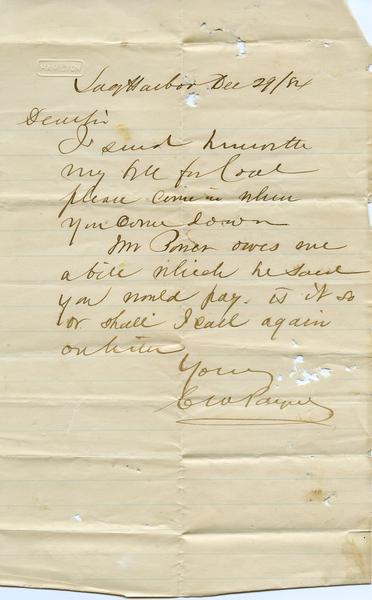 HAMILTON
Sag Harbor Dec 29/84
Dear Sir
I send herewith
my bill for Coal
please come in when
you come down
Mr owes me
a bill which he said
you would pay. is it so
or shall I call again
on
Yours
C W Payne